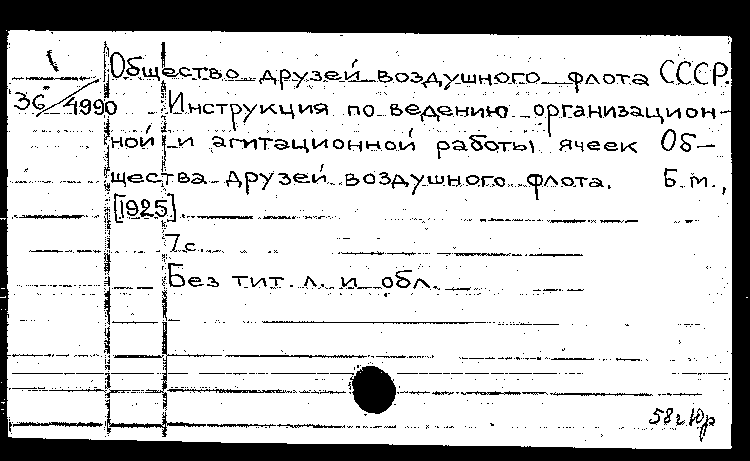 Общество друзей воздушного флота СССР.
36/4990 Инструкция по ведению организацион-
ной и агитационной работы ячеек Об-
щества друзей воздушного флота. Б.м.,
[1925].
7с.
Без тит. л. и обл.